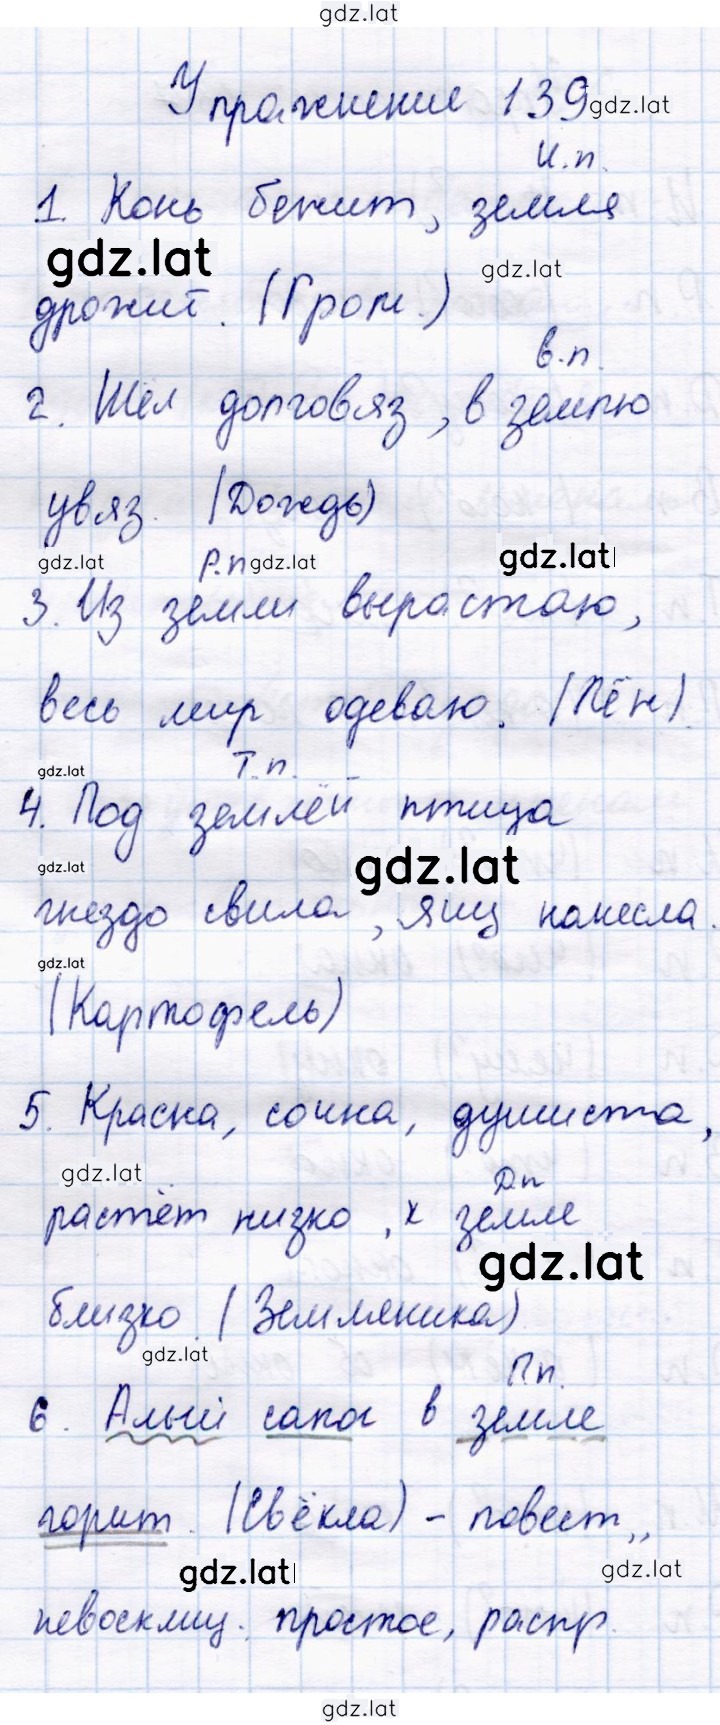 gdz.lat
Упражнение 139 gdz.lat
И.п.
1. Конь бежит, земля
gdz.lat gdz.lat
дрожит. (Гром.)
В.п.
2. Шёл долговяз, в землю
увяз. (Дождь)
gdz.lat Р.п gdz.lat gdz.lat
3. Из земли вырастаю,
весь мир одеваю. (Лён)
gdz.lat Т.п.
4. Под землёй птица
gdz.lat gdz.lat
гнездо свила, яиц нанесла.
gdz.lat
(Картофель)
5. Красна, сочна, душиста,
gdz.lat Д.п
растёт низко, к земле
gdz.lat
близко. (Земляника)
gdz.lat П.п.
6. Алый сапог в земле
горит. (Свёкла) – повест.,
gdz.lat gdz.lat
невосклиц., простое, распр.
gdz.lat